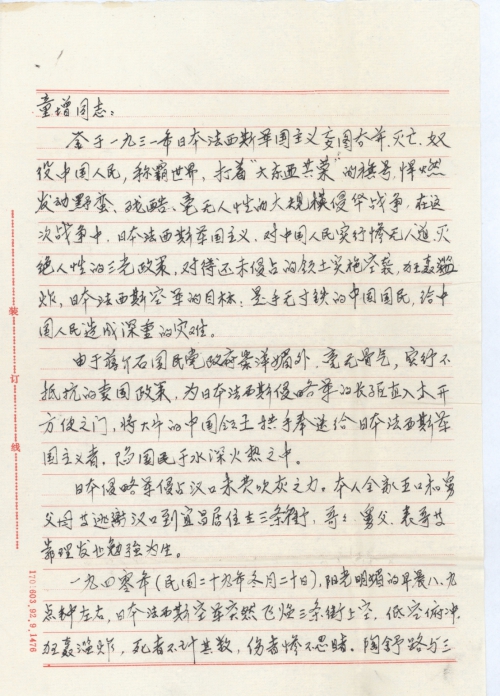 童增同志：
鉴于一九三一年日本法西斯军国主义变图吞并、灭亡、奴
役中国人民，称霸世界，打着“大东亚共荣”的旗号，悍然
发动野蛮、残酷、毫无人性的大规模侵华战争，在这
次战争中，日本法西斯军国主义，对中国人民实行惨无人道、灭
绝人性的三光政策，对待还未侵占的领土实施空袭，狂轰滥
炸，日本法西斯空军的目标：是手无寸铁的中国国民，给中
国人民造成深重的灾难。
由于蒋介石国民党政府崇洋媚外，毫无骨气，实行不
抵抗的卖国政策，为日本法西斯侵略军的长驱直入大开
方便之门，将大片的中国领土拱手奉送给日本法西斯军
国主义者，陷国民于水深火热之中。
日本侵略军侵占汉口未费吹灰之力。本人全家五口和舅
父母女逃离汉口到宜昌居住在三条街，哥哥、舅父、表哥皆
靠理发业勉强为生。
一九四零年（民国二十九年冬月二十日），阳光明媚的早晨八、九
点钟左右，日本法西斯空军突然飞临三条街上空，低空俯冲
狂轰滥炸，死者不计其数，伤者惨不忍睹。陶舒路与三
装订线
170:603.92.9.1476